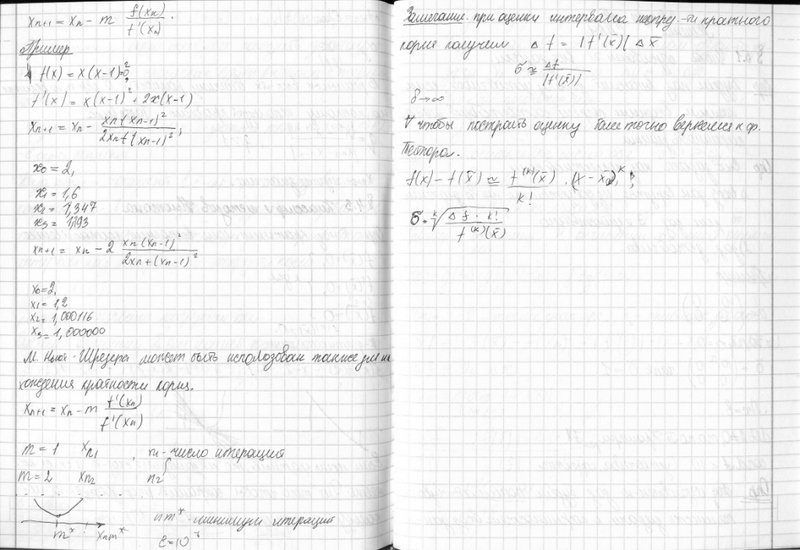 xn+1 = xn − m f(xn) / f'(xn) .
Пример
f(x) = x(x−1)² = 0
f'(x) = x(x−1)² + 2x(x−1)
xn+1 = xn − xn(xn−1)² / 2xn + (xn−1)² ,
x0 = 2,
x1 = 1,6
x2 = 1,347
x3 = 1,193
xn+1 = xn − 2 xn(xn−1)² / 2xn + (xn−1)²
x0 = 2,
x1 = 1,2
x2 = 1,000116
x3 = 1,000000
М. Ньют - Шредера может быть использован также для на
хождения кратности корня.
xn+1 = xn − m f'(xn) / f'(xn)
m = 1 xn1 , n - число итераций
m = 2 xn2 n2
m* xnm* nm* - минимум итераций
ε = 10
Замечание. при оценки интервала - ти кратного
корня получим Δf = |f'(x̄)| Δx̄
σ ≈ Δf / |f'(x̄)|
δ → ∞
чтобы построить оценку более точно вернемся к ф.
Тейлора.
f(x) − f(x̄) ≃ f^(k)(x̄) / k! · (x − x̄)^k ;
σ = ᵏ√(Δf · k! / f^(k)(x̄))